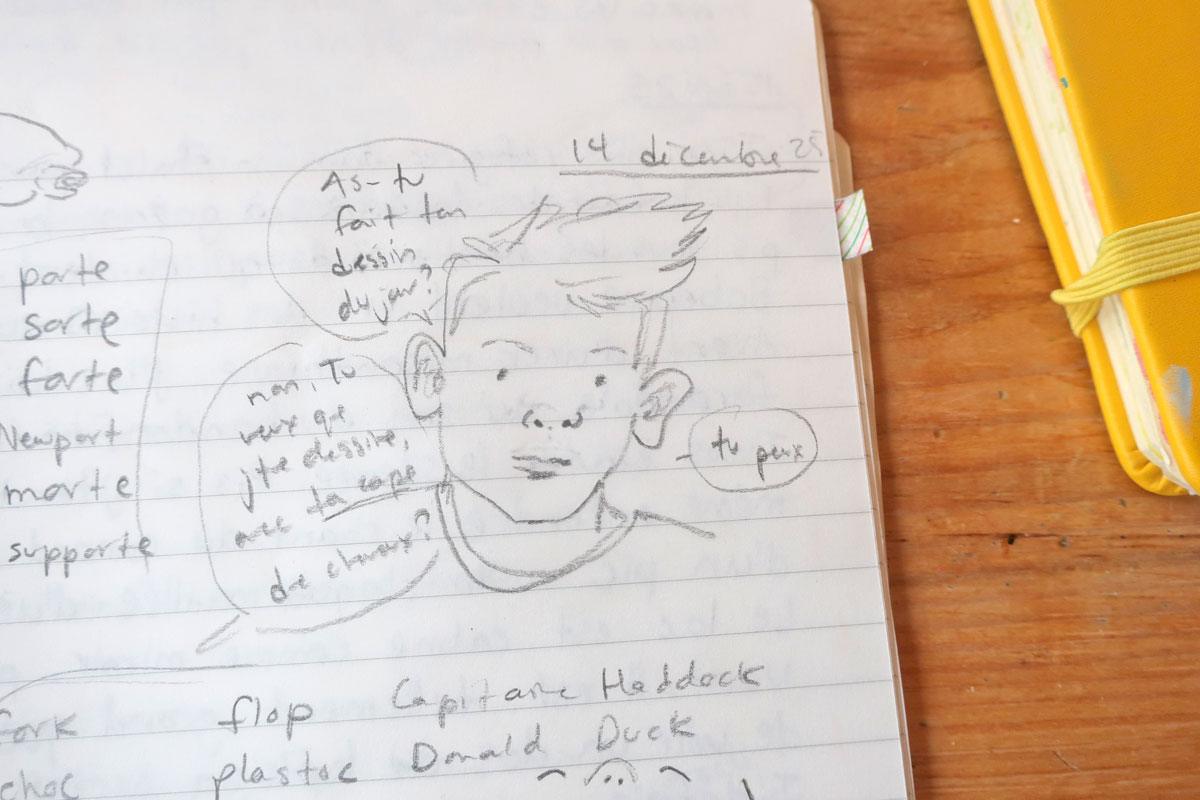 14 décembre 25
As-tu
fait ton
dessin
du jour?
non, Tu
veux que
j'te dessine,
avec ta cape
de cheveux?
tu peux
porte
sorte
forte
Newport
morte
supporte
fork
choc
flop
plastoc
Capitaine Haddock
Donald Duck